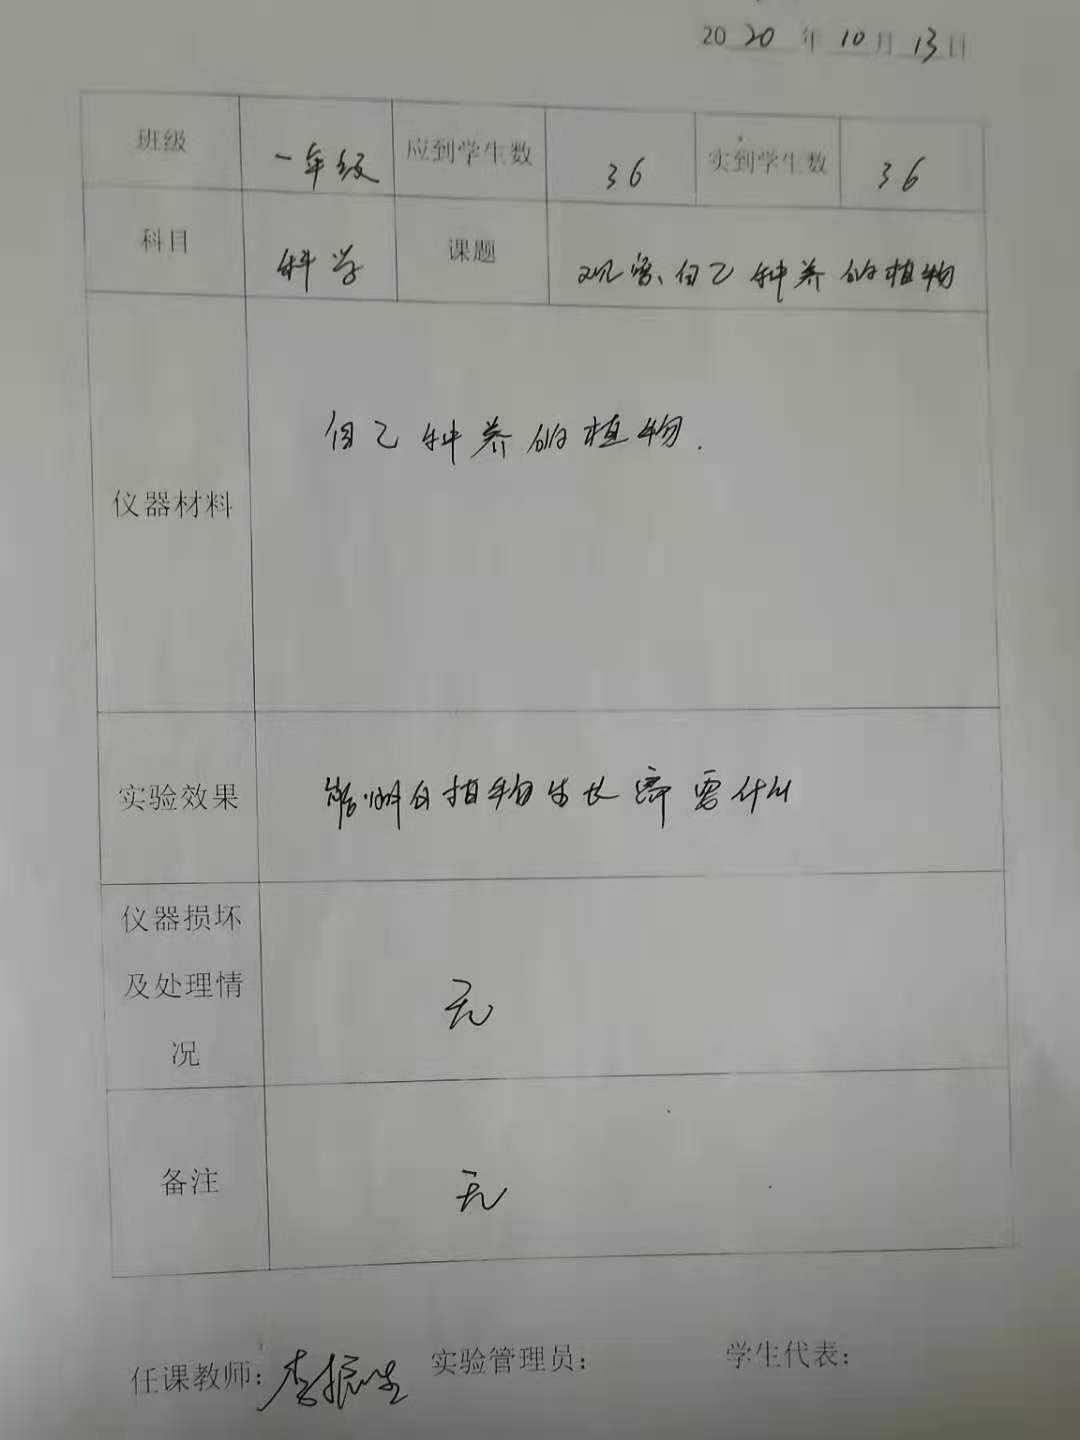 2020年10月13日
班级 一年级 应到学生数 36 实到学生数 36
科目 科学 课题 观察自己种养的植物
仪器材料 自己种养的植物.
实验效果 能明白植物生长需要什么
仪器损坏
及处理情
况
无
备注 无
任课教师：李振生 实验管理员： 学生代表：